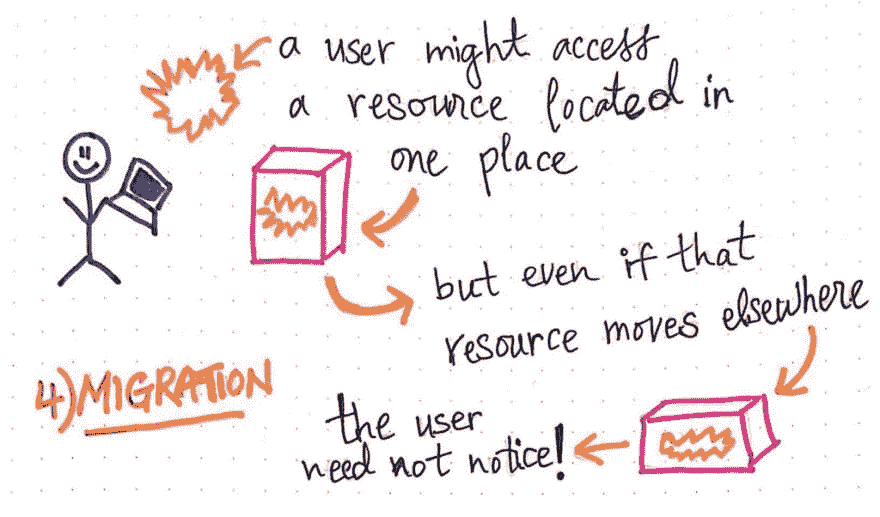 a user might access
a resource located in
one place
but even if that
resource moves elsewhere
4) MIGRATION
the user
need not notice!